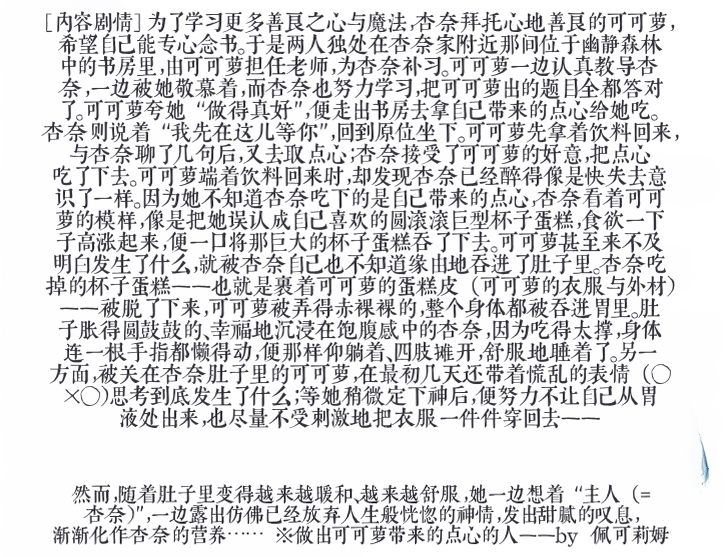 [内容剧情] 为了学习更多善良之心与魔法,杏奈拜托心地善良的可可萝,
希望自己能专心念书。于是两人独处在杏奈家附近那间位于幽静森林
中的书房里,由可可萝担任老师,为杏奈补习。可可萝一边认真教导杏
奈,一边被她敬慕着,而杏奈也努力学习,把可可萝出的题目全都答对
了。可可萝夸她“做得真好”,便走出书房去拿自己带来的点心给她吃。
杏奈则说着“我先在这儿等你”,回到原位坐下。可可萝先拿着饮料回来,
与杏奈聊了几句后,又去取点心;杏奈接受了可可萝的好意,把点心
吃了下去。可可萝端着饮料回来时,却发现杏奈已经醉得像是快失去意
识了一样。因为她不知道杏奈吃下的是自己带来的点心,杏奈看着可可
萝的模样,像是把她误认成自己喜欢的圆滚滚巨型杯子蛋糕,食欲一下
子高涨起来,便一口将那巨大的杯子蛋糕吞了下去。可可萝甚至来不及
明白发生了什么,就被杏奈自己也不知道缘由地吞进了肚子里。杏奈吃
掉的杯子蛋糕——也就是裹着可可萝的蛋糕皮（可可萝的衣服与外材）
——被脱了下来,可可萝被弄得赤裸裸的,整个身体都被吞进胃里。肚
子胀得圆鼓鼓的、幸福地沉浸在饱腹感中的杏奈,因为吃得太撑,身体
连一根手指都懒得动,便那样仰躺着、四肢摊开,舒服地睡着了。另一
方面,被关在杏奈肚子里的可可萝,在最初几天还带着慌乱的表情（○
×○)思考到底发生了什么;等她稍微定下神后,便努力不让自己从胃
液处出来,也尽量不受刺激地把衣服一件件穿回去——
然而,随着肚子里变得越来越暖和、越来越舒服,她一边想着“主人（=
杏奈)”,一边露出仿佛已经放弃人生般恍惚的神情,发出甜腻的叹息,
渐渐化作杏奈的营养…… ※做出可可萝带来的点心的人——by 佩可莉姆